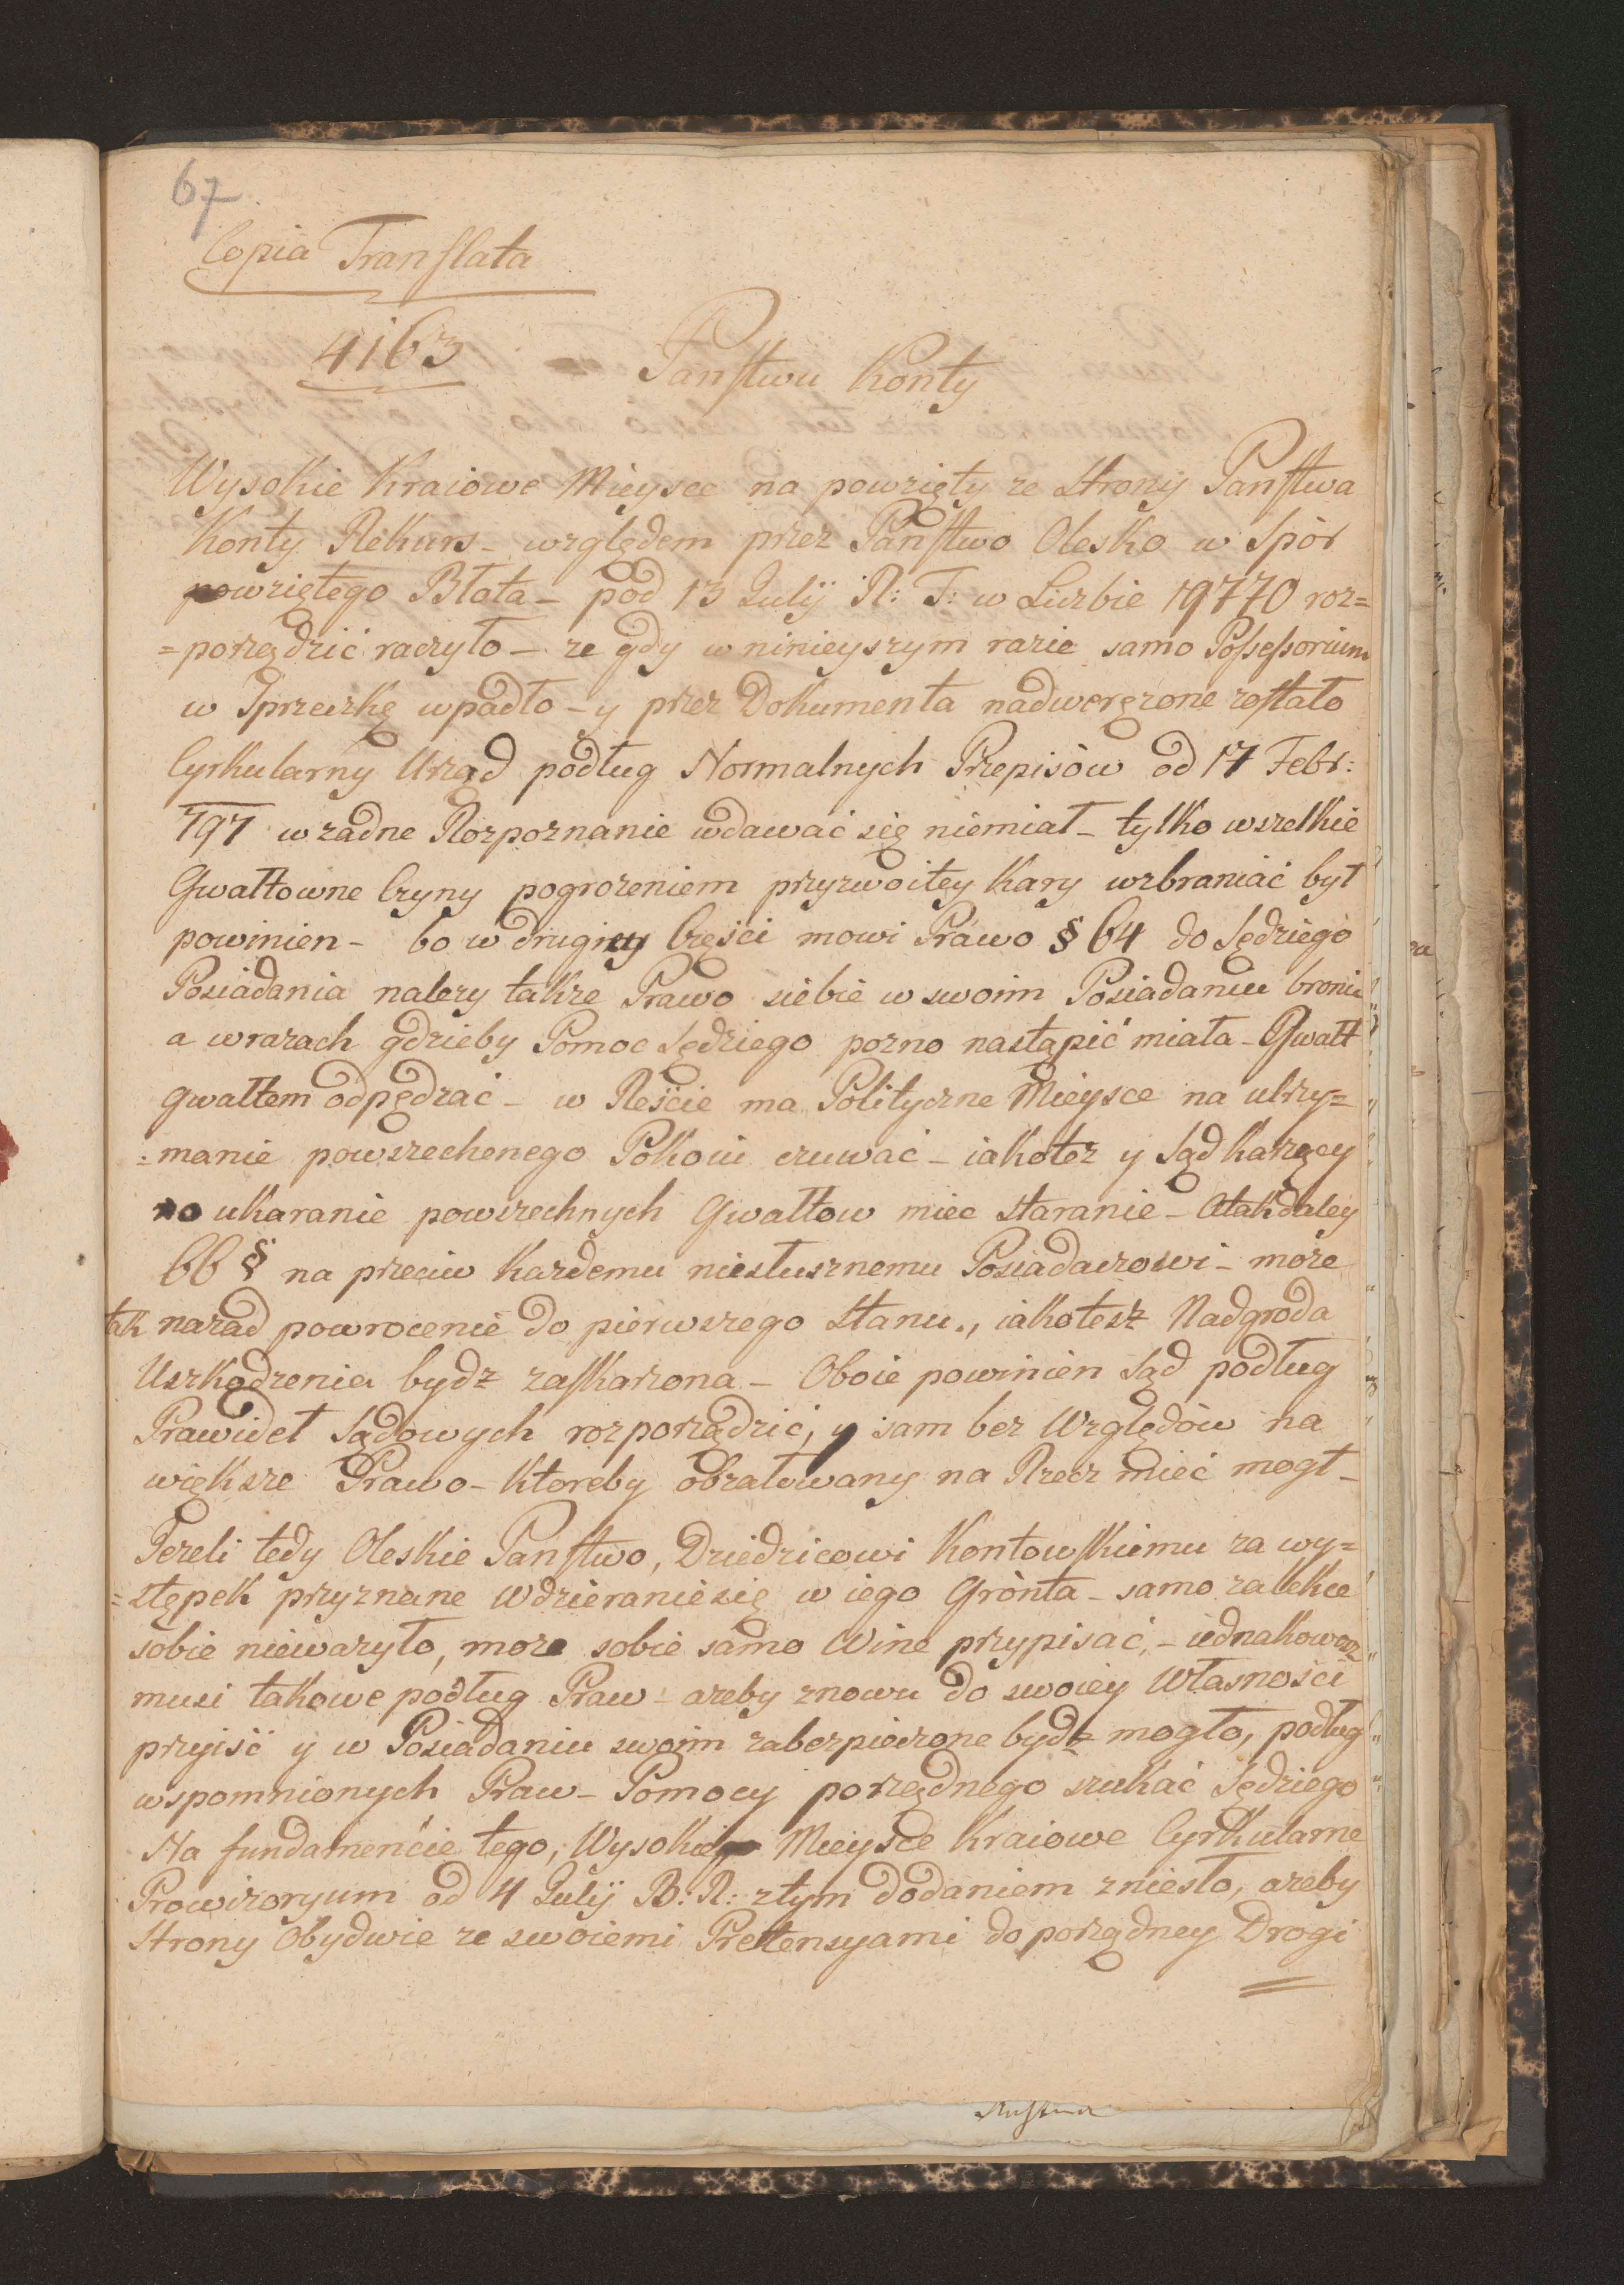 67
Copia Translata
4163
Panstwu Konty
Wysokie Kraiowe Mieysce na powzięty ze strony Panstwa
Konty Rekurs – względem przez Panstwo Olesko w Spór
powziętego Błota – pod 13 Julij R: T: w Liczbie 19770 roz=
=porządzić raczyło – ze gdy w ninieyszym razie samo Possessorium
w Sprzeczkę wpadło – y przez Dokumenta nadwerężone zostało
Cyrkularny Urząd podług Normalnych Przepisów od 17 Febr:
797 w zadne Rozpoznanie wdawać się niemiał – tylko wszelkie
Gwałtowne Czyny pogrozeniem przyzwoitey Kary wzbraniać był
powinien – bo w drugiey Częsci mowi Prawo § 64 do Sędziego
Posiadania nalezy takze Prawo siebie w swoim Posiadaniu bronic
a w razach gdzieby Pomoc Sędziego pozno nastąpić miała – Gwałt
gwałtem odpędzać – w Reście ma Polityczne Mieysce na utrzy=
=manie powszechenego Pokoiu czuwać – iakotez y Sąd karzący
no ukaranie powszechnych Gwałtow miec staranie – Atakdaley
66 § na przeciw kazdemu niesłusznemu Posiadaczowi – moze
tak nazad powrocenie do pierwszego stanu, iakotesz Nadgroda
Uszkodzenia bydz zaskarzona – Oboie powinien Sąd podług
Prawideł Sądowych rozporządzić, y sam bez Względów na
większe Prawo – ktoreby obzałowany na Rzecz mieć mogł –
Jezeli tedy Oleskie Panstwo, Dziedzicowi Kontowskiemu za wy=
=stępek przyznane wdzieraniesię w iego Grònta – samo zalekce
sobie nieważyło, moze sobie samo Wine przypisać, – iednakowosz
musi takowe podług Praw – azeby znowu do swoiey Własności
przyiść y w Posiadaniu swoim zabezpieczone bydz mogło, podług
wspomnionych Praw – Pomocy porządnego szukać Sędziego
Na fundamencie tego, Wysokie Mieysce Kraiowe Cyrkularne
Prowizoryum od 4 Julij B: R: ztym dodaniem zniesło, azeby
Strony Obydwie ze swoiemi Pretensyami do porządney Drogi